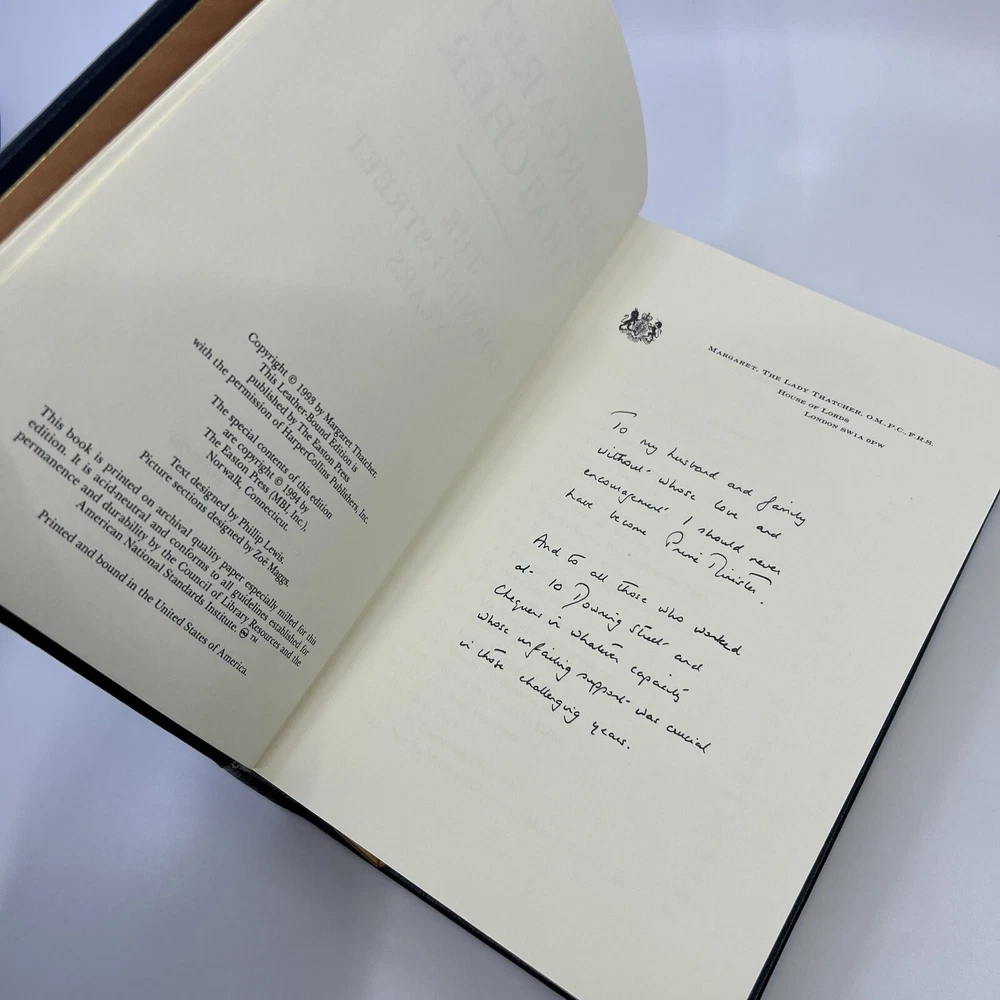 MARGARET
THATCHER
THE
DOWNING STREET
YEARS
Copyright © 1993 by Margaret Thatcher.
This Leather-Bound Edition is
published by The Easton Press
with the permission of HarperCollins Publishers, Inc.
The special contents of this edition
are copyright © 1994 by
The Easton Press (MBI, Inc.),
Norwalk, Connecticut.
Text designed by Phillip Lewis.
Picture sections designed by Zoë Maggs.
This book is printed on archival quality paper especially milled for this
edition. It is acid-neutral and conforms to all guidelines established for
permanence and durability by the Council of Library Resources and the
American National Standards Institute. ♾ ™
Printed and bound in the United States of America.
MARGARET, THE LADY THATCHER, O.M., P.C., F.R.S.
HOUSE OF LORDS
LONDON SW1A 0PW
To my husband and family
without whose love and
encouragement I should never
have become Prime Minister.
And to all those who worked
at 10 Downing Street and
Chequers in whatever capacity
whose unfailing support was crucial
in those challenging years.